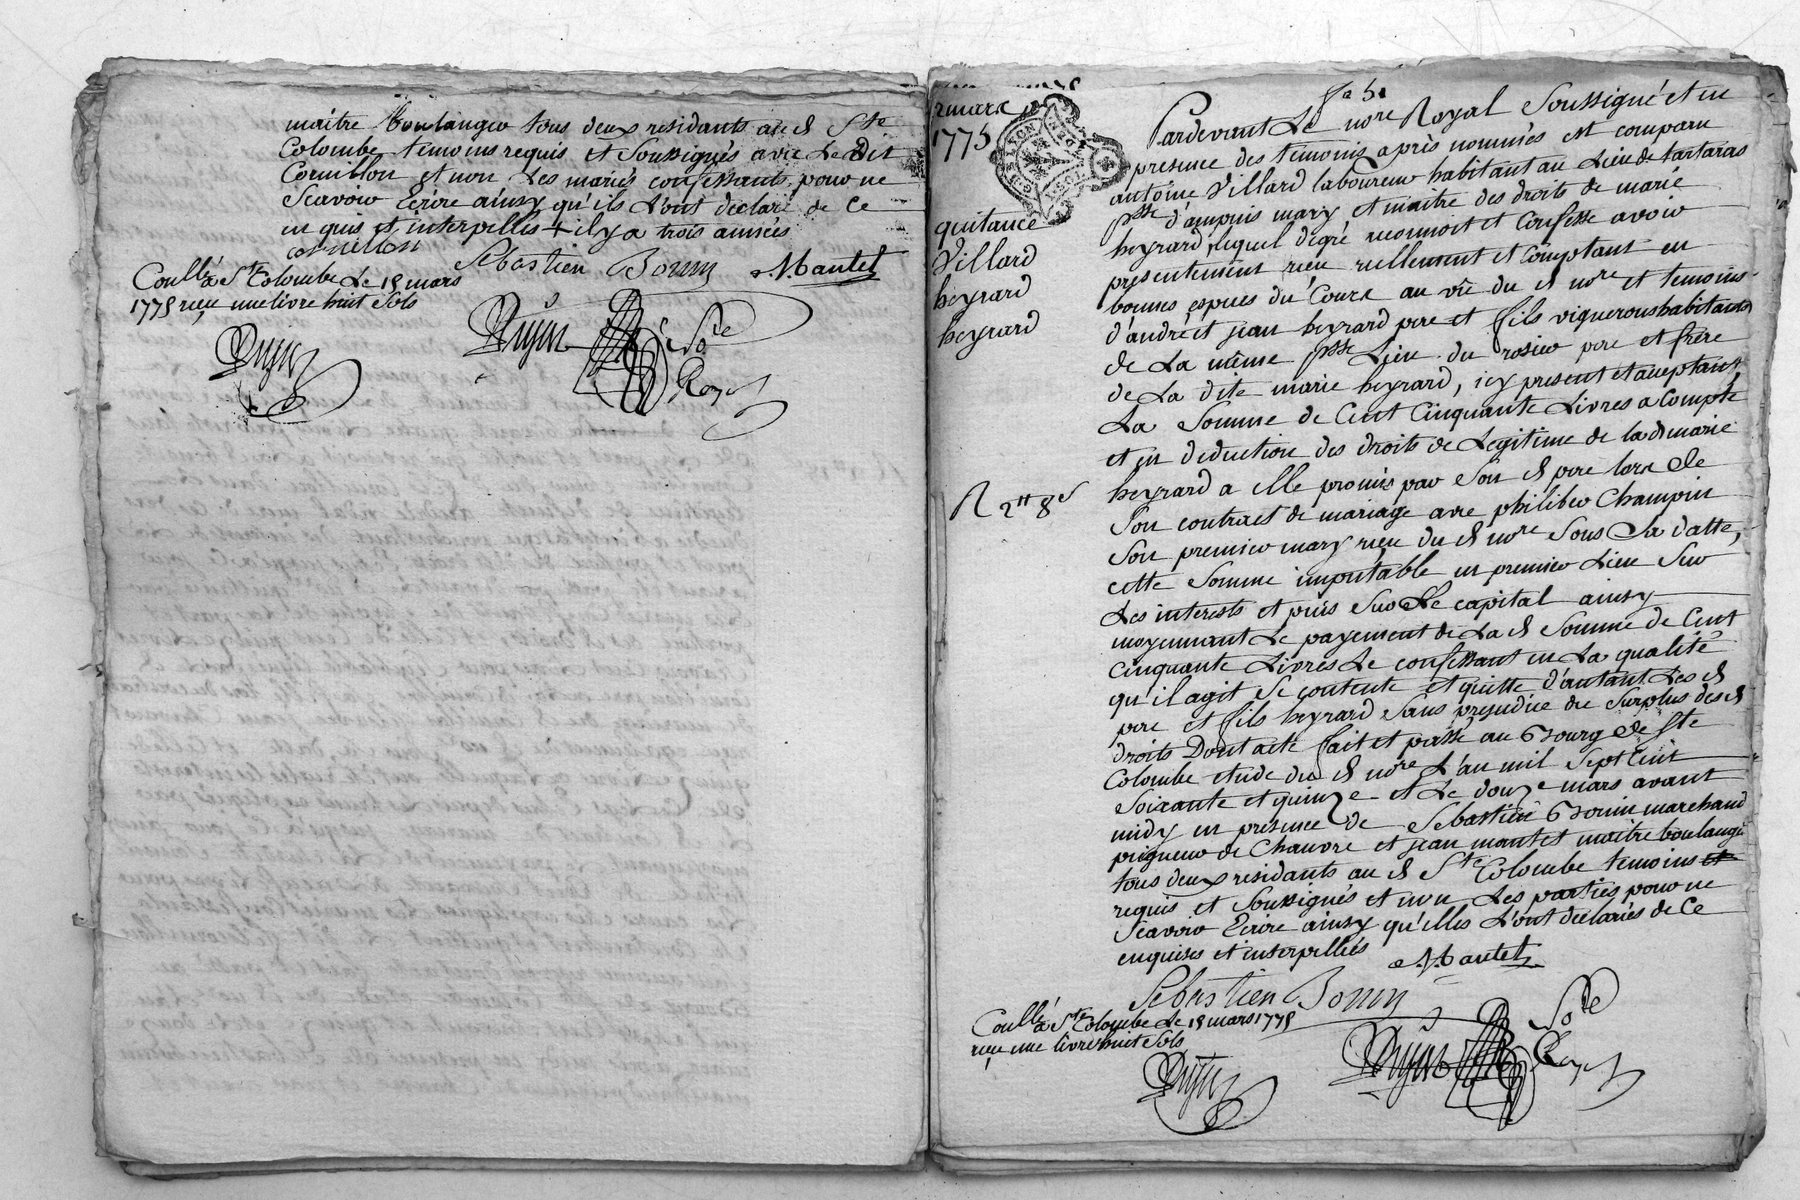 maitre Boulanger tous deux residants au d Ste
Colombe temoins requis et Soussignés avec Le dit
Cornillon et non Les mariés confessants pour ne
Scavoir Ecrire ainsy qu'ils L'ont declaré de Ce
enquis et interpellés + il y a trois années
cornillon
Sebastien Bonin Mantet
Coullé a Ste Colombe Le 18 mars
1775 reçu une livre huit Sols
Dujar
Dujar
Nore
Royal
fo 51
2 mars
1775
quitance
Villard
heyrard
heyrard
R 2tt 8s
Pardevant Le nore Royal Soussigné et en
presence des temoins après nommés est comparu
antoine Villard laboureur habitant au Lieu de tartaras
psse d'ampuis mary et maitre des droits de marie
heyrard, lequel degré reconnoit et Confesse avoir
presentement reçu reellement et Comptant en
bonnes especes du Cours au vû du d nore et temoins
d'andré et jean heyrard pere et fils vignerons habitants
de La même psse Lieu du rosier pere et frere
de La dite marie heyrard, icy present et acceptants
La Somme de Cent Cinquante Livres a Compte
et en deduction des droits de Legitime de lad marie
heyrard a elle promis par Son d pere lors de
Son contract de mariage avec philiber Champin
Son premier mary reçu du d nore Sous Sa datte,
cette Somme imputable en premier Lieu Sur
Les interests et puis Sur Le capital ainsy
moyennant Le payement de La d Somme de Cent
Cinquante Livres Le confessant en La qualité
qu'il agit Se contente et quitte d'autant Les d
pere et fils heyrard Sans prejudice du Surplus des d
droits Dont acte fait et passé au Bourg de Ste
Colombe etude du d nore L'an mil Sept Cent
Soixante et quinze et Le douze mars avant
midy en presence de Sebastien Bonin marchand
peigneur de Chanvre et jean mantet maitre boulanger
tous deux residants au d Ste Colombe temoins et
requis et Soussignés et non Les parties pour ne
Scavoir Ecrire ainsy qu'elles L'ont declarés de Ce
enquises et interpellés
Mantet
Sebastien Bonin
Coullé a Ste Colombe Le 18 mars 1775
reçu une livre huit Sols
Dujar
Dujar
Nore
Royal